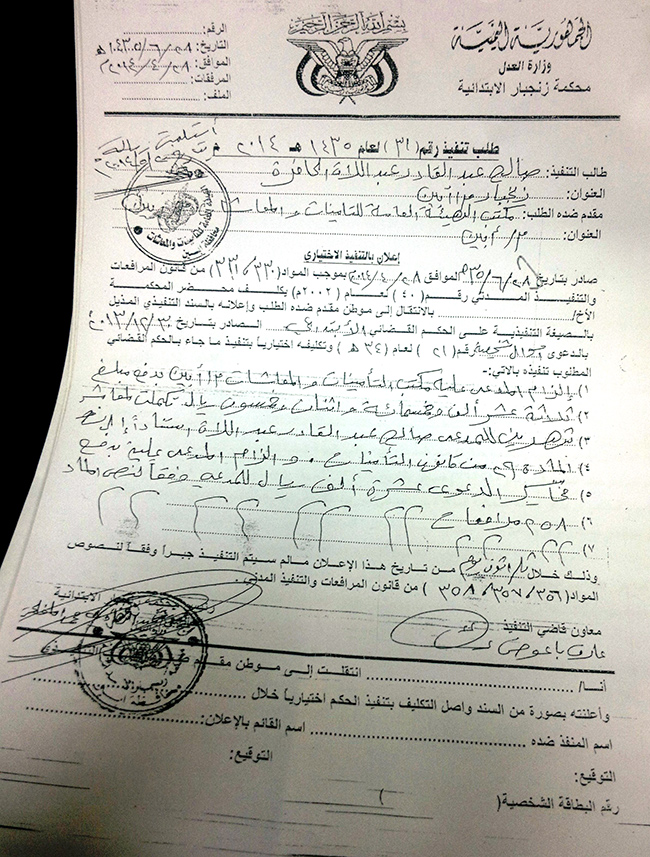 بسم الله الرحمن الرحيم
الجمهورية اليمنية
وزارة العدل
محكمة زنجبار الابتدائية
الرقم:
التاريخ: ٢٨/٦/١٤٣٥هـ
الموافق: ٢٨/٤/٢٠١٤م
المرفقات:
الملف:
طلب تنفيذ رقم (٣١) لعام ١٤٣٥ هـ ٢٠١٤ م
طالب التنفيذ: صالح عبد القادر عبد اللاه
العنوان: زنجبار م/ أبين
مقدم ضده الطلب: مكتب الهيئة العامة للتأمينات والمعاشات
العنوان: م/ أبين
إعلان بالتنفيذ الاختياري
صادر بتاريخ ٢٨/٦/٣٥ الموافق ٢٨/٤/٢٠١٤ بموجب المواد (٣٣٠/٣٣١) من قانون المرافعات
والتنفيذ المدني رقم (٤٠) لعام (٢٠٠٢م) يكلف محضر المحكمة
الأخ/ بالانتقال إلى موطن مقدم ضده الطلب وإعلانه بالسند التنفيذي المذيل
بالصيغة التنفيذية على الحكم القضائي الابتدائي الصادر بتاريخ
بالدعوى رقم (٢١) لعام (٣٤ هـ) وتكليفه اختيارياً بتنفيذ ما جاء بالحكم القضائي
المطلوب تنفيذه بالآتي:-
١) إلزام المدعى عليه مكتب التأمينات والمعاشات م/ أبين بدفع مبلغ
٢) ثلاثة عشر ألف وخمسمائة واثنان وخمسون ريال
٣) للمدعي صالح عبد القادر عبد اللاه استناداً
٤) المادة من قانون التأمينات. وإلزام المدعى عليه بدفع
٥) الدعوى عشرة ألف ريال للمدعي وفقاً لنص المادة
٦) ٢٥٨ مرافعات
٧)
وذلك خلال من تاريخ هذا الإعلان مالم سيتم التنفيذ جبراً وفقاً لنصوص
المواد (٣٥٦/٣٥٧/٣٥٨) من قانون المرافعات والتنفيذ المدني.
معاون قاضي التنفيذ
أنا/ انتقلت إلى موطن مقدم
وأعلنته بصورة من السند واصل التكليف بتنفيذ الحكم اختيارياً خلال
اسم المنفذ ضده اسم القائم بالإعلان:
التوقيع: التوقيع:
رقم البطاقة الشخصية( )